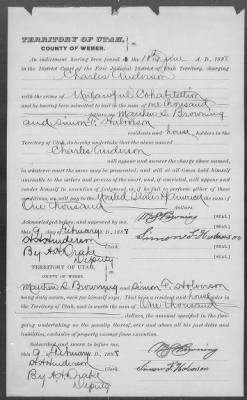 TERRITORY OF UTAH,
COUNTY OF WEBER.
An indictment having been found on the 10th June A. D., 1887
in the District Court of the First Judicial District of Utah Territory, charging
Charles Anderson
with the crime of Unlawful Cohabitation
and he having been admitted to bail in the sum of one thousand
dollars we Martius S. Browning
and Simon F. Halvorson
residents and house holders in the
Territory of Utah, do hereby undertake that the above named
Charles Anderson
will appear and answer the charge above named,
in whatever court the same may be presented, and will at all times hold himself
amenable to the orders and process of the court, and, if convicted, will appear and
under himself in execution of judgment, or if he fail to perform either of these
conditions, we will pay to the United States of America
the sum of
One Thousand dollars
Acknowledged before, and approved by me,
this 9 February D., 1888
H H Henderson
Clerk.
By A. H. Drake
Deputy
[Seal.]
Simon F Halvorson [Seal.]
[Seal.]
TERRITORY OF UTAH,
COUNTY OF WEBER.
Martius S. Browning and Simon F. Halvorson
being duly sworn, each for himself says: That he is a resident and house holder in the
Territory of Utah, and is worth the sum of One thousand
dollars, the amount specified in the fore-
going undertaking as the penalty thereof, over and above all his just debts and
liabilities, exclusive of property exempt from execution.
Subscribed and sworn to before me,
this 9 February D., 1888
H H Henderson
Clerk.
By A. H. Drake
Deputy
Simon F Halvorson